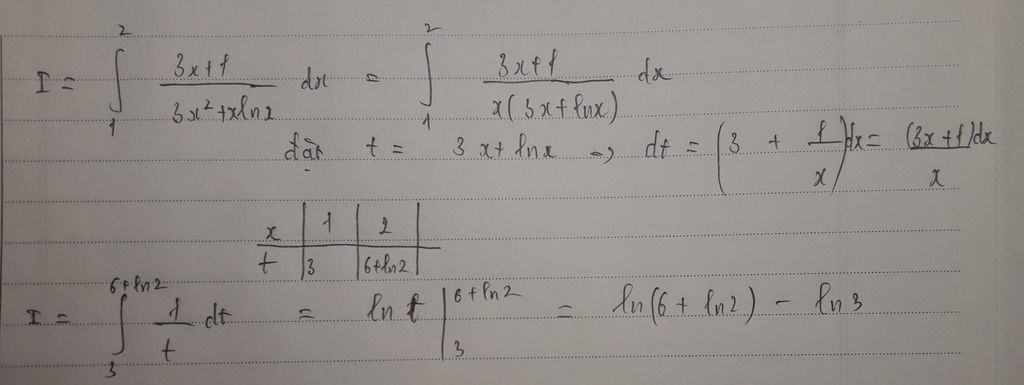 I = ∫₁² (3x+1)/(3x²+xlnx) dx = ∫₁² (3x+1)/(x(3x+lnx)) dx
đặt t = 3x+lnx → dt = (3 + 1/x)dx = (3x+1)dx/x
x | 1 | 2
t | 3 | 6+ln2
I = ∫₃^(6+ln2) 1/t dt = ln t |₃^(6+ln2) = ln(6+ln2) - ln3